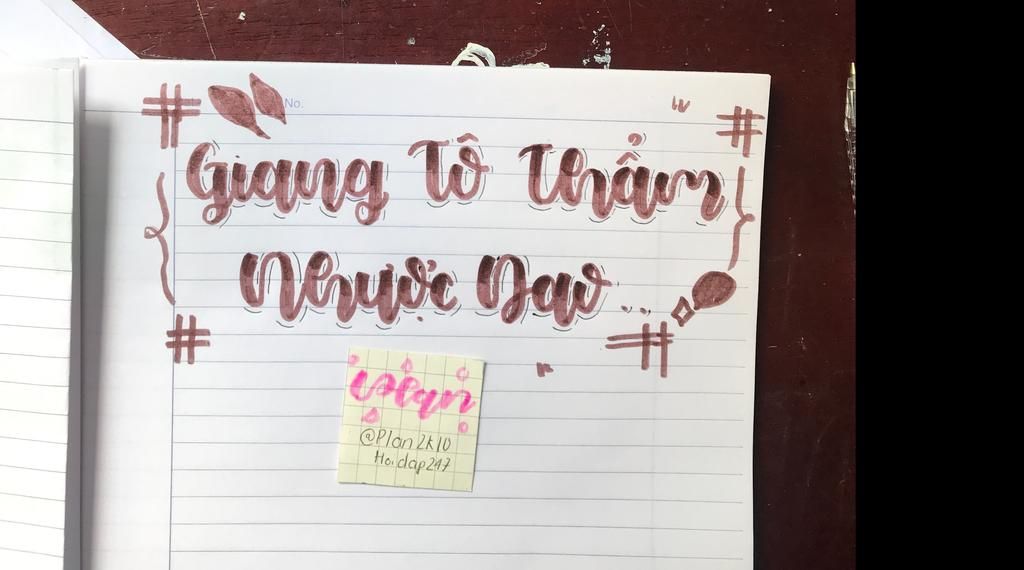 No.
Giang Tô Thẩm
Nhược Dao ...
Plan
@Plan2k10
Hoidap247